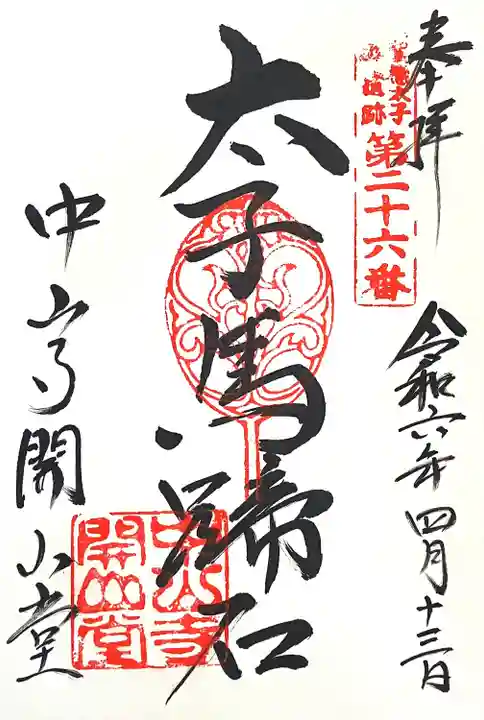 奉拝
聖徳太子
御遺跡
第二十六番
令和六年四月十三日
太子馬蹄石
中山寺
開山堂
中山寺開山堂